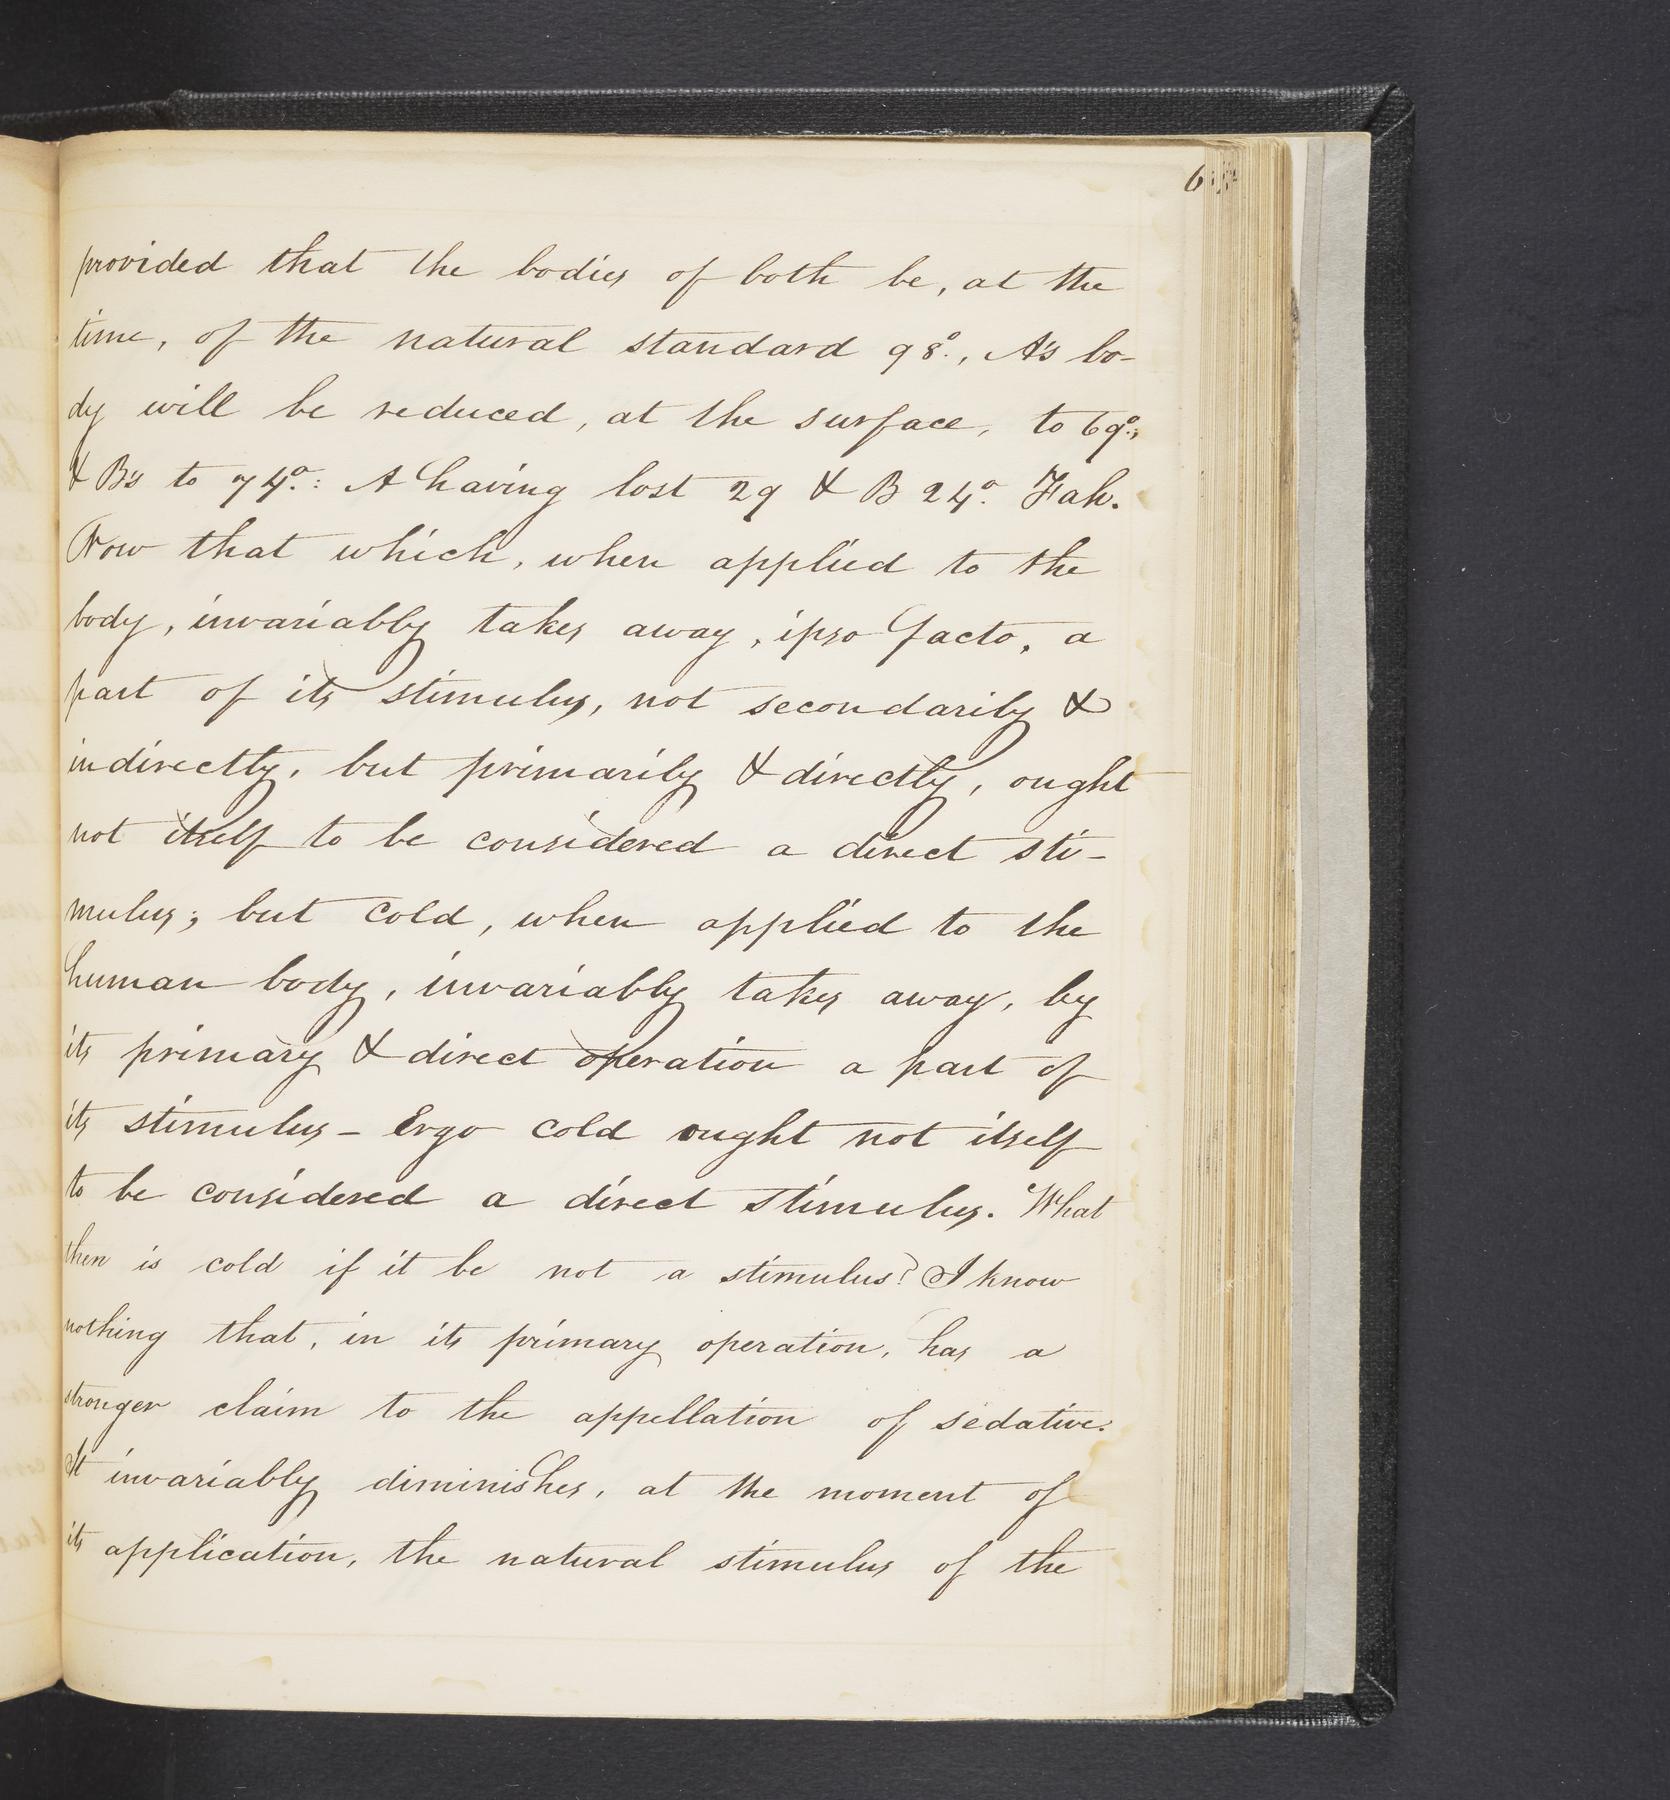 6
provided that the bodies of both be, at the
time, of the natural standard 98°., A's bo-
dy will be reduced, at the surface, to 69°.,
& B's to 74°.: A having lost 29 & B 24°. Fah.
Now that which, when applied to the
body, invariably takes away, ipso facto, a
part of its stimulus, not secondarily &
indirectly, but primarily & directly, ought
not itself to be considered a direct sti-
mulus; but cold, when applied to the
human body, invariably takes away, by
its primary & direct operation a part of
its stimulus - Ergo cold ought not itself
to be considered a direct stimulus. What
then is cold if it be not a stimulus? I know
nothing that, in its primary operation, has a
stronger claim to the appellation of sedative.
It invariably diminishes, at the moment of
its application, the natural stimulus of the